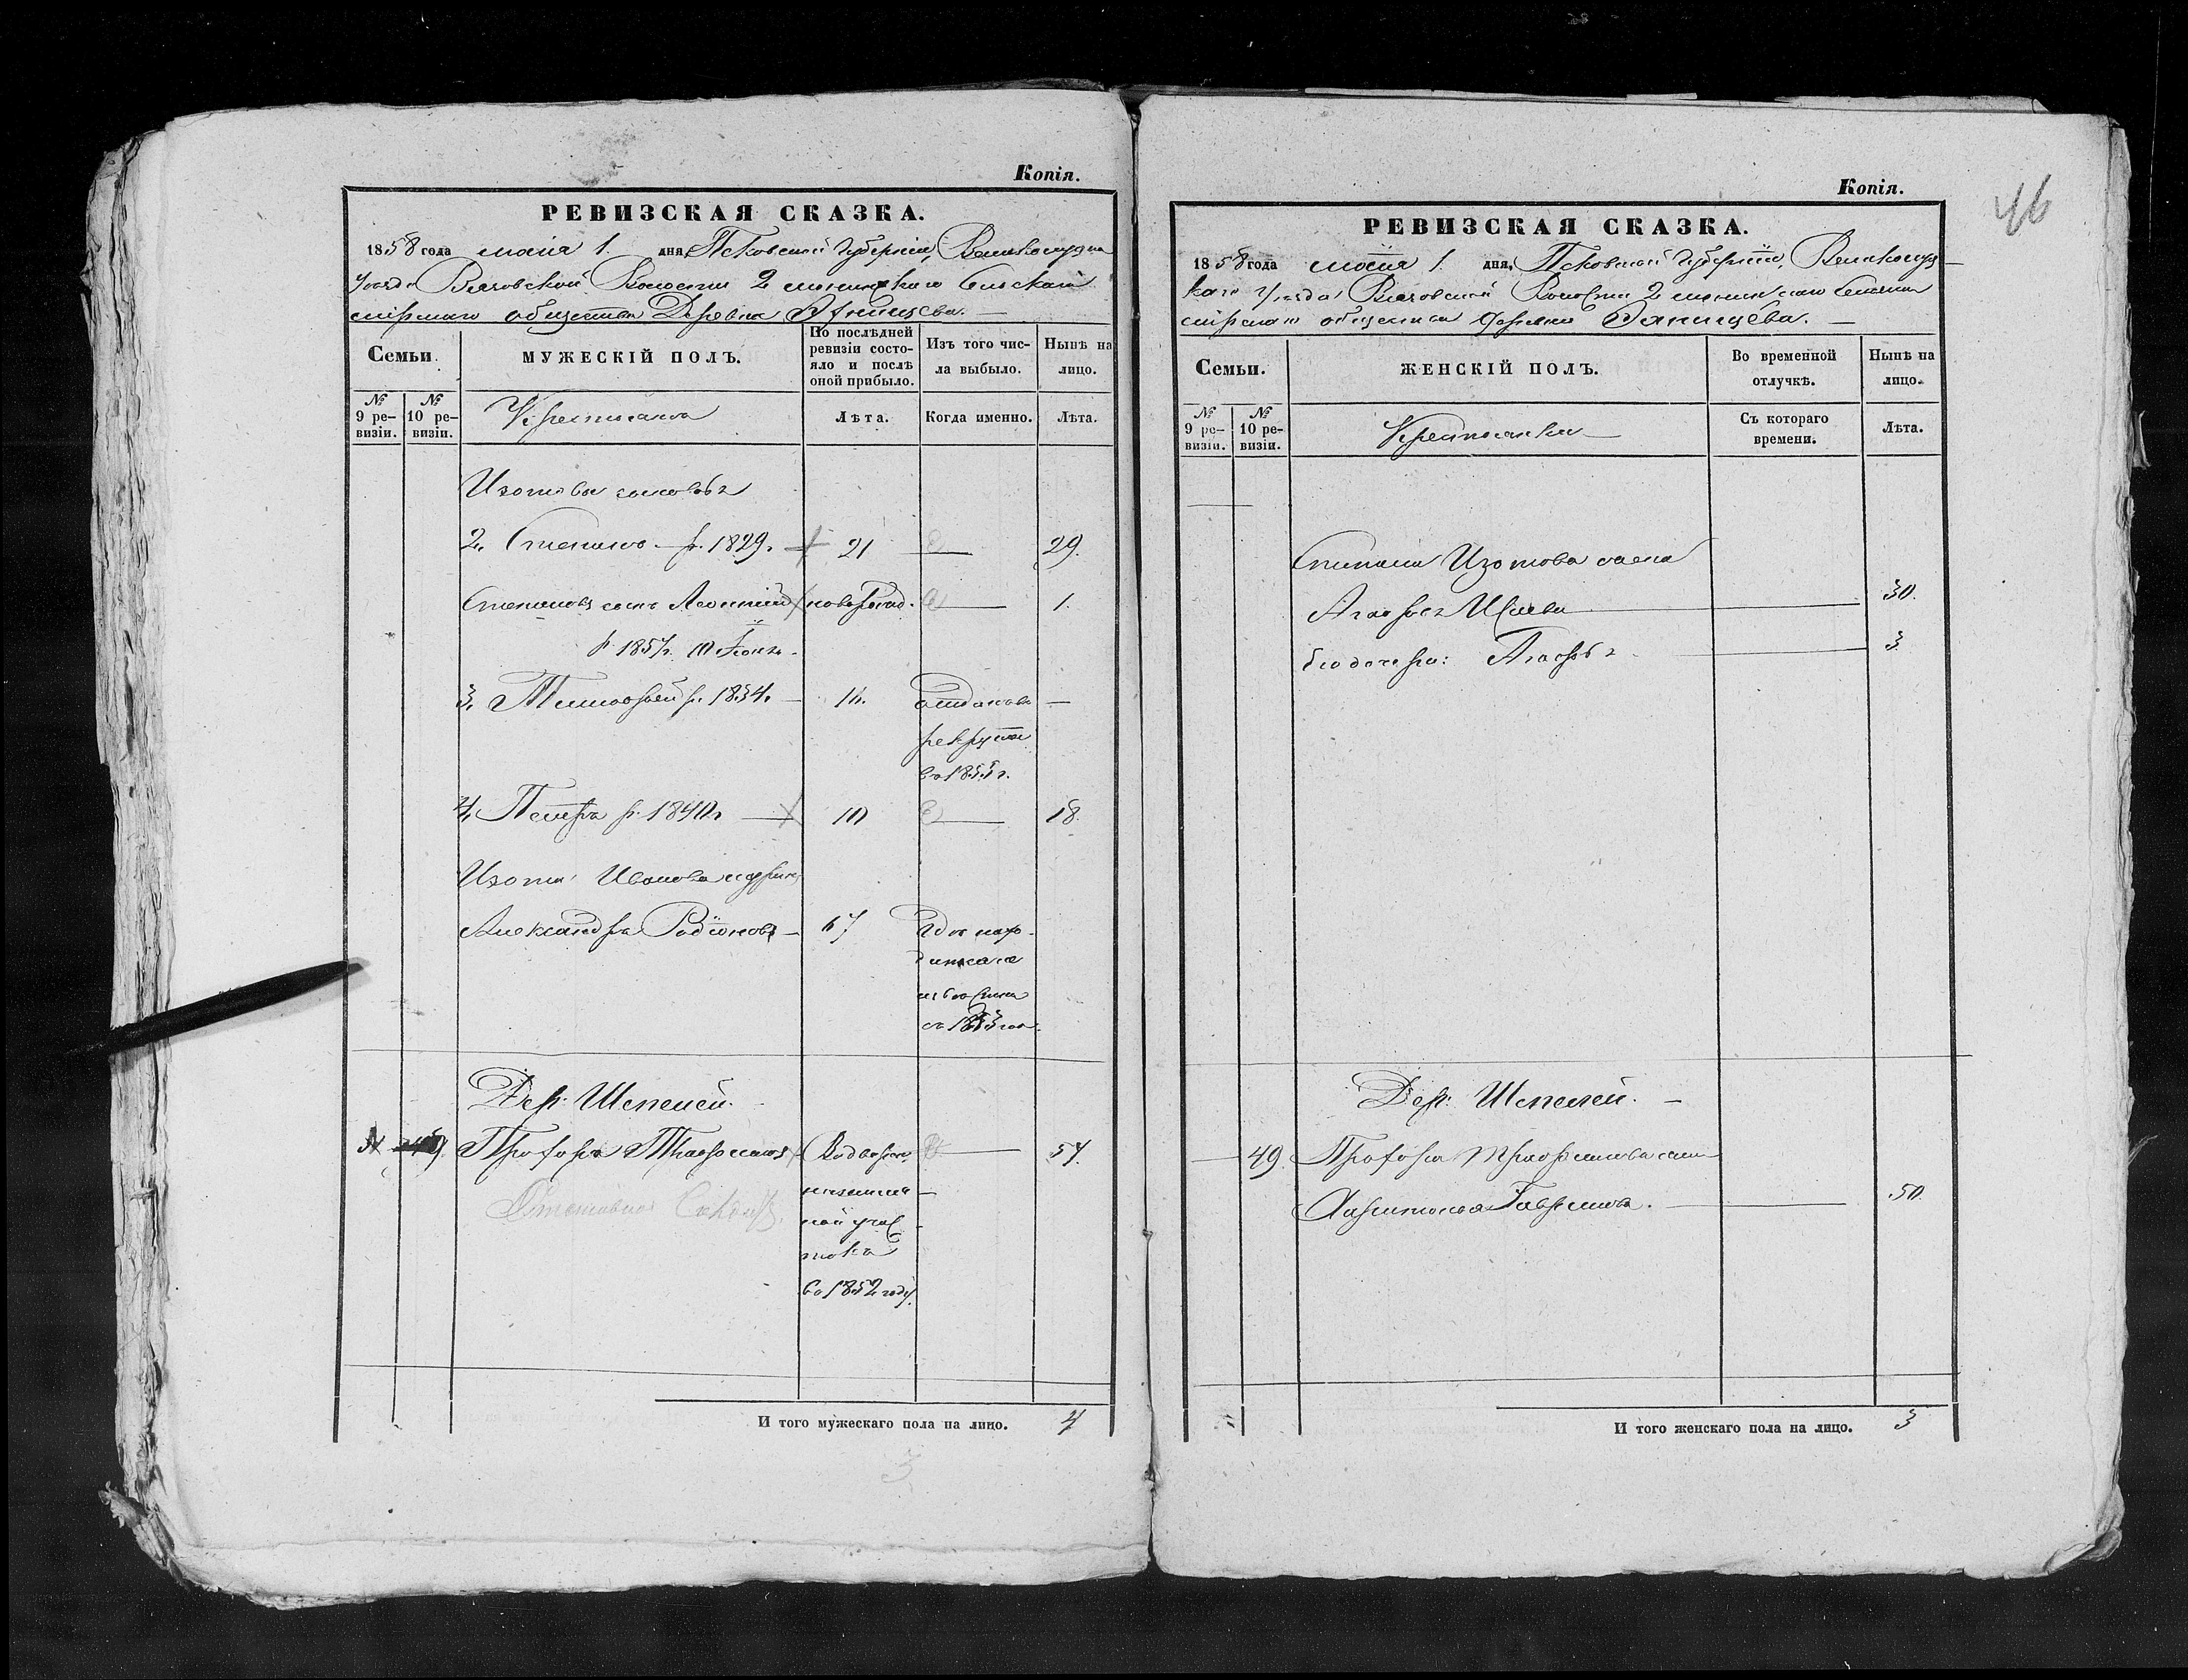 Копія.
РЕВИЗСКАЯ СКАЗКА.
1858 года маія 1. дня, Псковской Губерніи, Великолуцка
Уезда Волости 2
мірскаго общества Деревни
Семьи.
МУЖЕСКІЙ ПОЛЪ.
По послѣдней ревизіи состояло и послѣ оной прибыло.
Изъ того числа выбыло.
Нынѣ на лицо.
№ 9 ревизіи.
№ 10 ревизіи.
Крестьяне
Лѣта.
Когда именно.
Лѣта.
Изотовы сыновья
2. Степанъ р. 1829. 21 — 29.
Степановъ сынъ Леонтій новорожд. — 1.
р 1857 г. 10 Іюня.
3. Тимофей р. 1834. — 16. отданъ въ —
рекруты
въ 1855 г.
4. Петръ р. 1840 г. — 10 — 18.
Изота Иванова
Александръ Родіоновъ — 67 Где нахо-
дится не
известна
съ 1853 года.
Дер: Шепелей.
49 Прохоръ Трафимовъ Водворен. — 57.
на казен-
ной учас-
токъ
въ 1852 году.
И того мужескаго пола на лицо. 4
3
46
Копія.
РЕВИЗСКАЯ СКАЗКА.
1858 года маія 1. дня, Псковской Губерніи, Великолуц-
каго Уезда Волости 2
мірскаго общества Деревни
Семьи.
ЖЕНСКІЙ ПОЛЪ.
Во временной отлучкѣ.
Нынѣ на лицо.
№ 9 ревизіи.
№ 10 ревизіи.
Крестьянки
Съ котораго времени.
Лѣта.
Степана Изотова жена
Агафья — 30.
его дочера: Агафья — 3.
Дер: Шепелей. —
— 49. Прохора Трафимова жена
Харитонья Гаврилова. — 50.
И того женскаго пола на лицо. 3